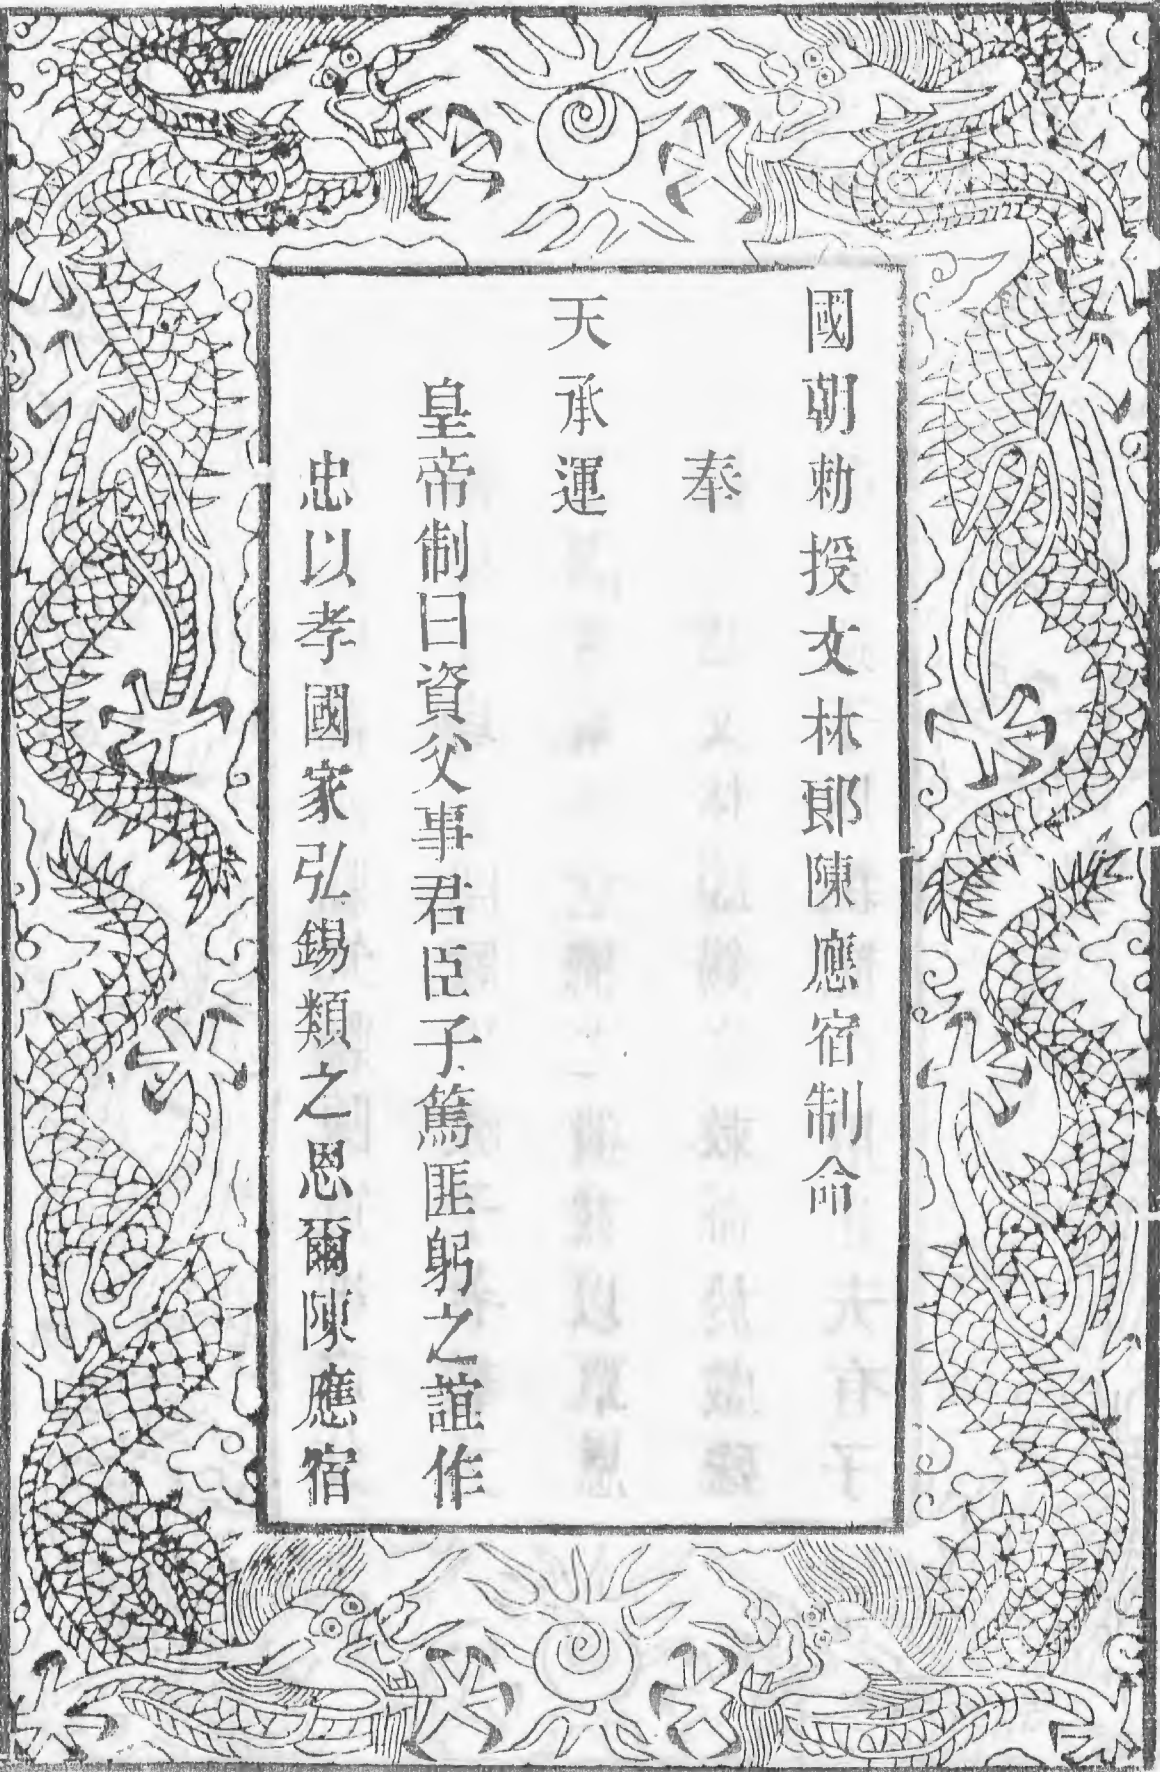 國朝勅授文林郎陳應宿制命
奉
天承運
皇帝制曰資父事君臣子篤匪躬之誼作
忠以孝國家弘錫類之恩爾陳應宿